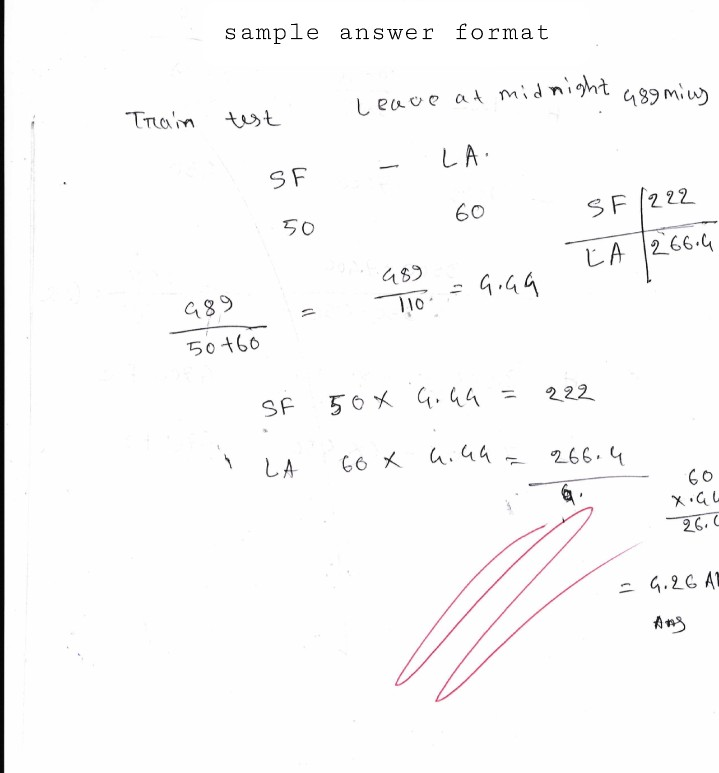 sample answer format
Train test Leave at midnight 489 mins
SF – LA.
50 60
SF 222
LA 266.4
489 / 50+60 = 489 / 110 = 4.44
SF 50 × 4.44 = 222
LA 60 × 4.44 = 266.4
60
= 4.26
Ans